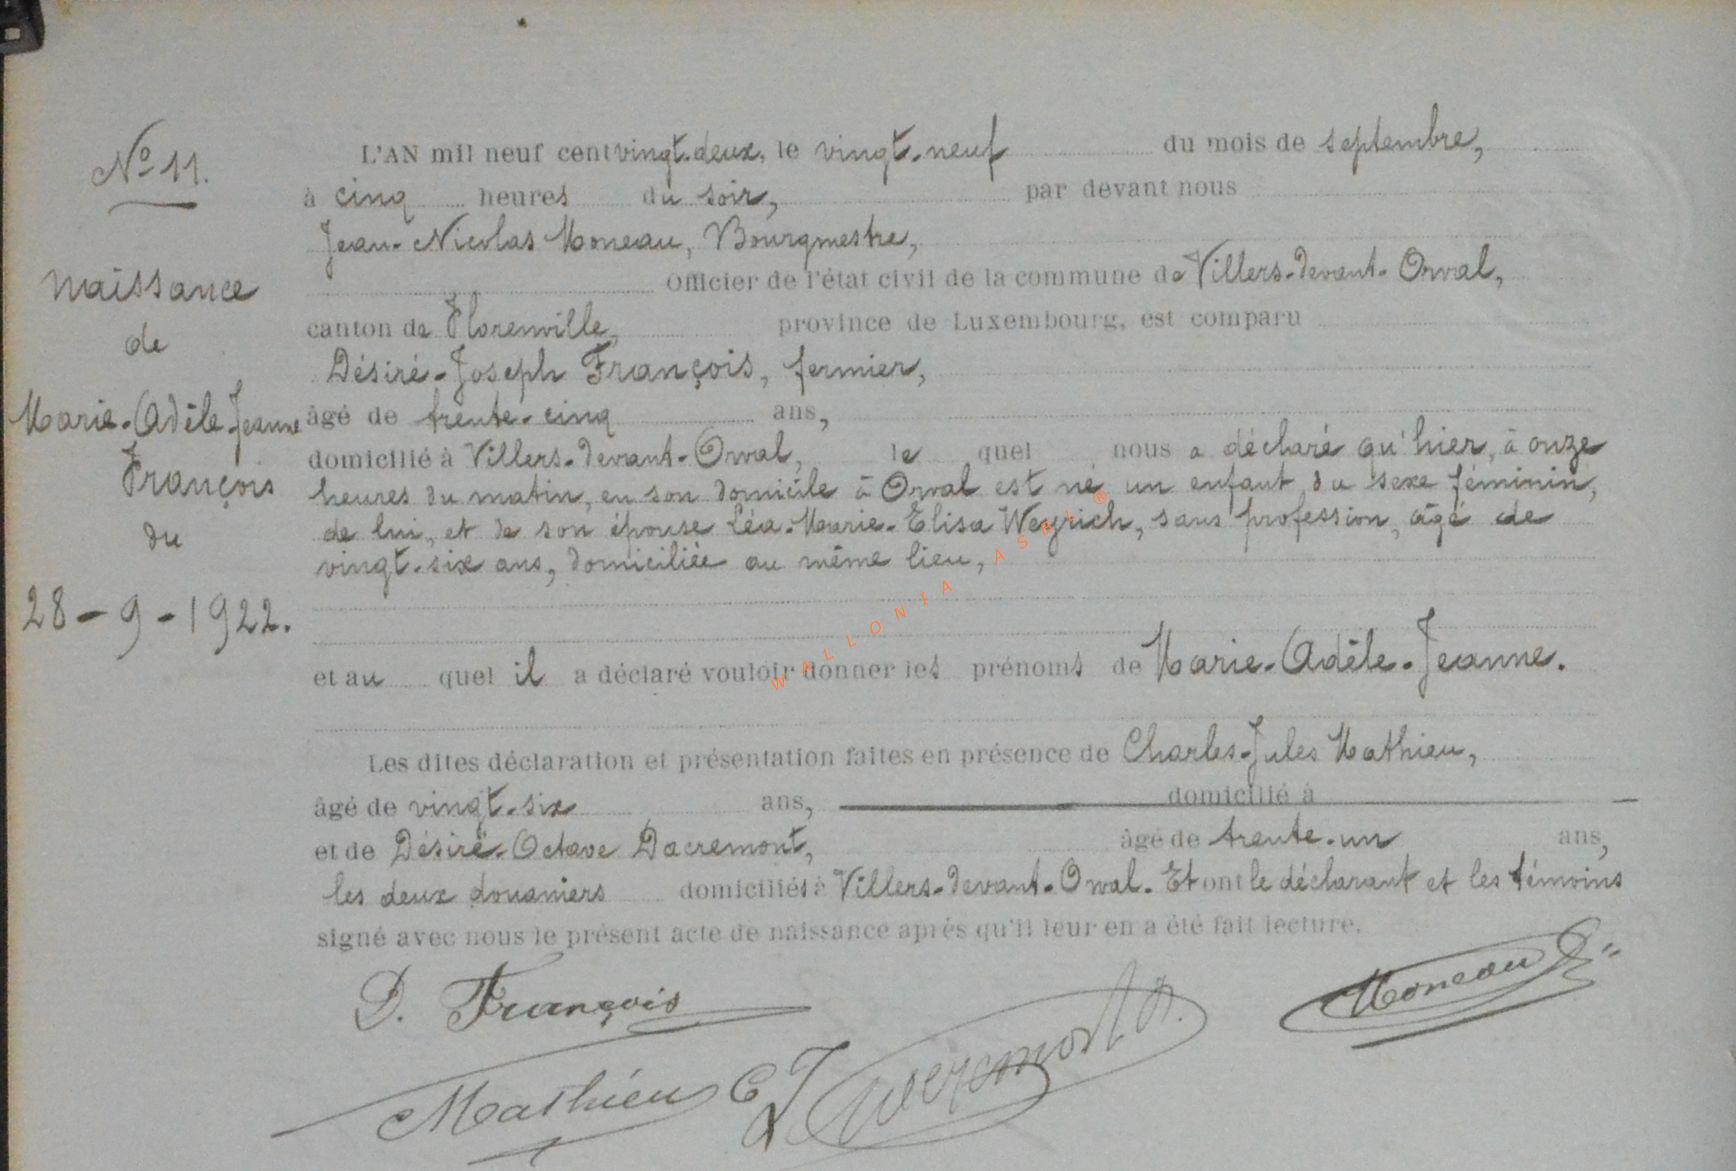 N° 11.
Naissance
de
Marie-Adèle-Jeanne
François
du
28-9-1922.
L'AN mil neuf cent vingt-deux, le vingt-neuf du mois de septembre,
à cinq heures du soir, par devant nous
Jean-Nicolas Moneau, Bourgmestre,
Officier de l'état civil de la commune de Villers-devant-Orval,
canton de Florenville, province de Luxembourg, est comparu
Désiré-Joseph François, fermier,
âgé de trente-cinq ans,
domicilié à Villers-devant-Orval, le quel nous a déclaré qu'hier, à onze
heures du matin, en son domicile à Orval est né un enfant du sexe féminin,
de lui, et de son épouse Léa-Marie-Elisa Weyrich, sans profession, âgé de
vingt-six ans, domiciliée au même lieu,
et au quel il a déclaré vouloir donner les prénoms de Marie-Adèle-Jeanne.
Les dites déclaration et présentation faites en présence de Charles-Jules Mathieu,
âgé de vingt-six ans, domicilié à
et de Désiré-Octave Dacremont, âgé de trente-un ans,
les deux douaniers domiciliés à Villers-devant-Orval. Et ont le déclarant et les témoins
signé avec nous le présent acte de naissance après qu'il leur en a été fait lecture.
D. François
Moneau
Mathieu C J
WALLONIA ASBL ©